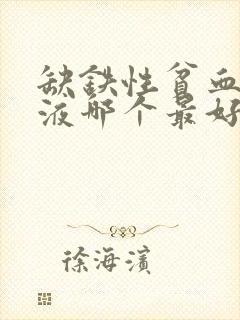 缺铁性贫血
液哪个最好
徐海滨